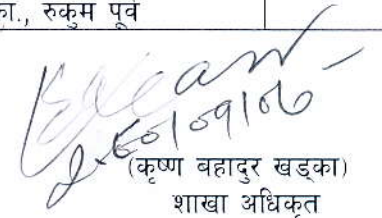 का., रुकुम पूर्व
(कृष्ण बहादुर खड्का)
शाखा अधिकृत